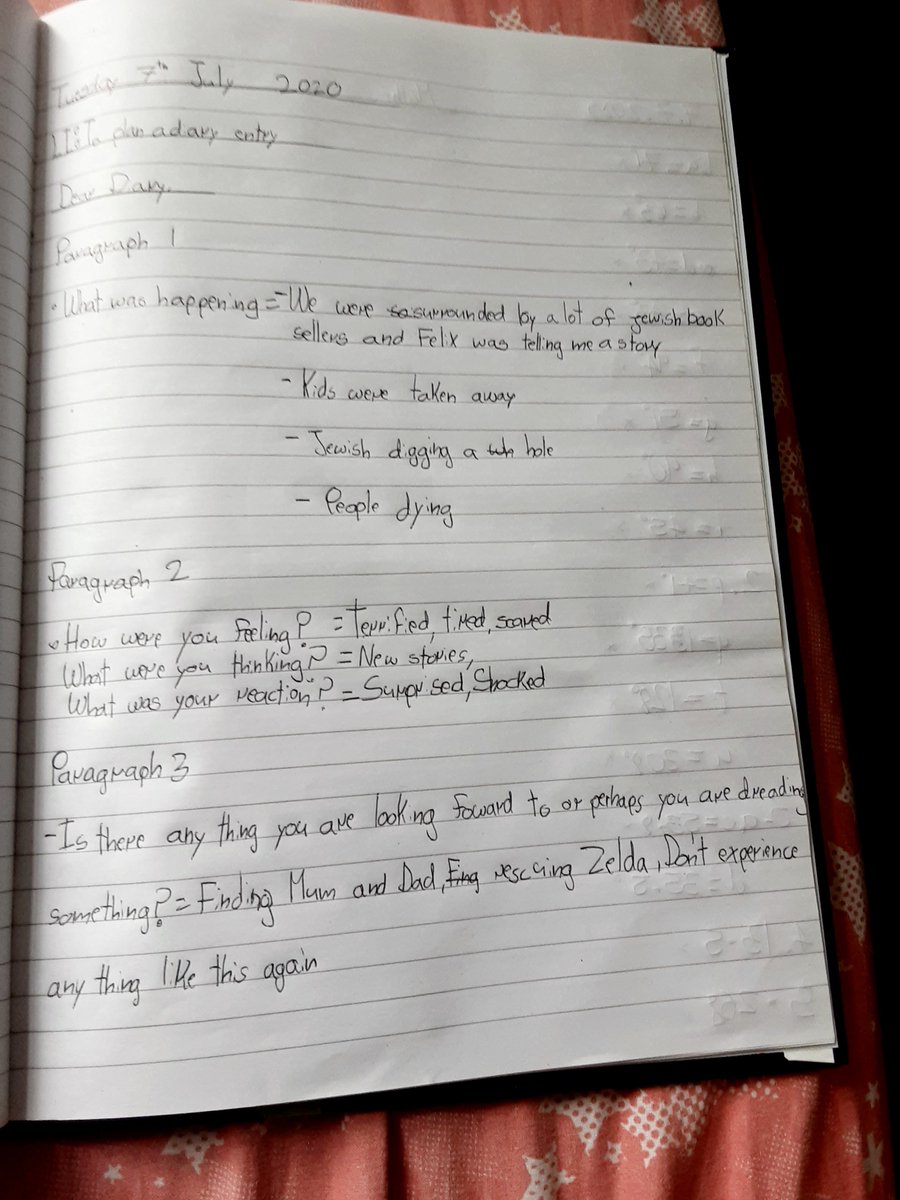 Tuesday 7th July 2020
L.I: To plan a dary entry
Dear Dary
Paragraph 1
• What was happening = - We were surrounded by a lot of jewish book
sellers and Felix was telling me a story
- Kids were taken away
- Jewish digging a hole
- People dying
Paragraph 2
• How were you feeling? = Terrified, tired, scared
What were you thinking? = New stories,
What was your reaction? = Surprised, Shocked
Paragraph 3
- Is there any thing you are looking foward to or perhaps you are dreading
something? = Finding Mum and Dad, rescuing Zelda, Don't experience
any thing like this again